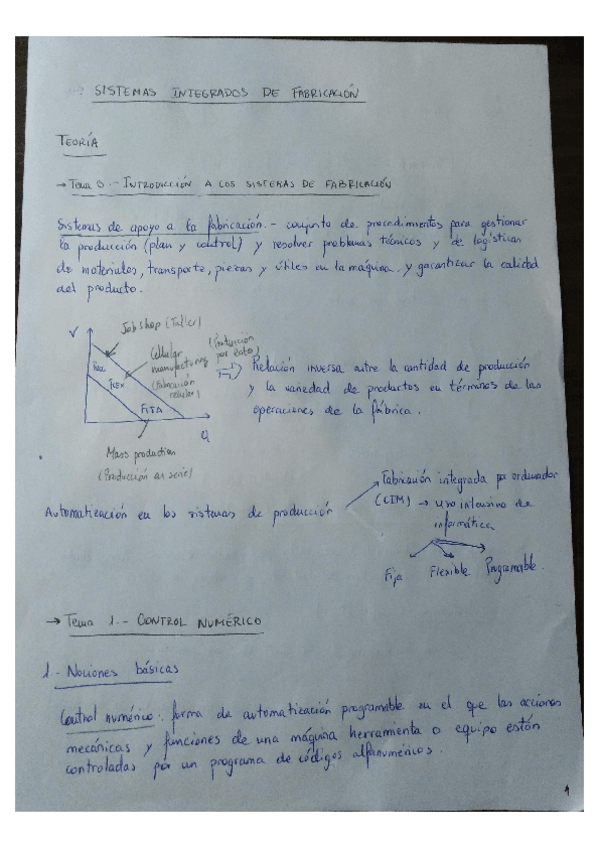 SISTEMAS INTEGRADOS DE FABRICACIÓN
TEORÍA
→ Tema 0.- INTRODUCCIÓN A LOS SISTEMAS DE FABRICACIÓN
Sistemas de apoyo a la fabricación.- conjunto de procedimientos para gestionar
la producción (plan y control) y resolver problemas técnicos y de logísticas
de materiales, transporte, piezas y útiles en la máquina y garantizar la calidad
del producto.
V
Job shop (Taller)
Cellular
manufacturing
(Fabricación
celular)
(Producción
por lote)
FLEX
FIJA
Q
Mass production
(Producción en serie)
Relación inversa entre la cantidad de producción
y la variedad de productos en términos de las
operaciones de la fábrica.
Automatización en los sistemas de producción
Fabricación integrada por ordenador
(CIM) → uso intensivo de
informática
Fija Flexible Programable.
→ Tema 1.- CONTROL NUMÉRICO
1.- Nociones básicas
Control numérico: forma de automatización programable en el que las acciones
mecánicas y funciones de una máquina herramienta o equipo están
controladas por un programa de códigos alfanuméricos.
1